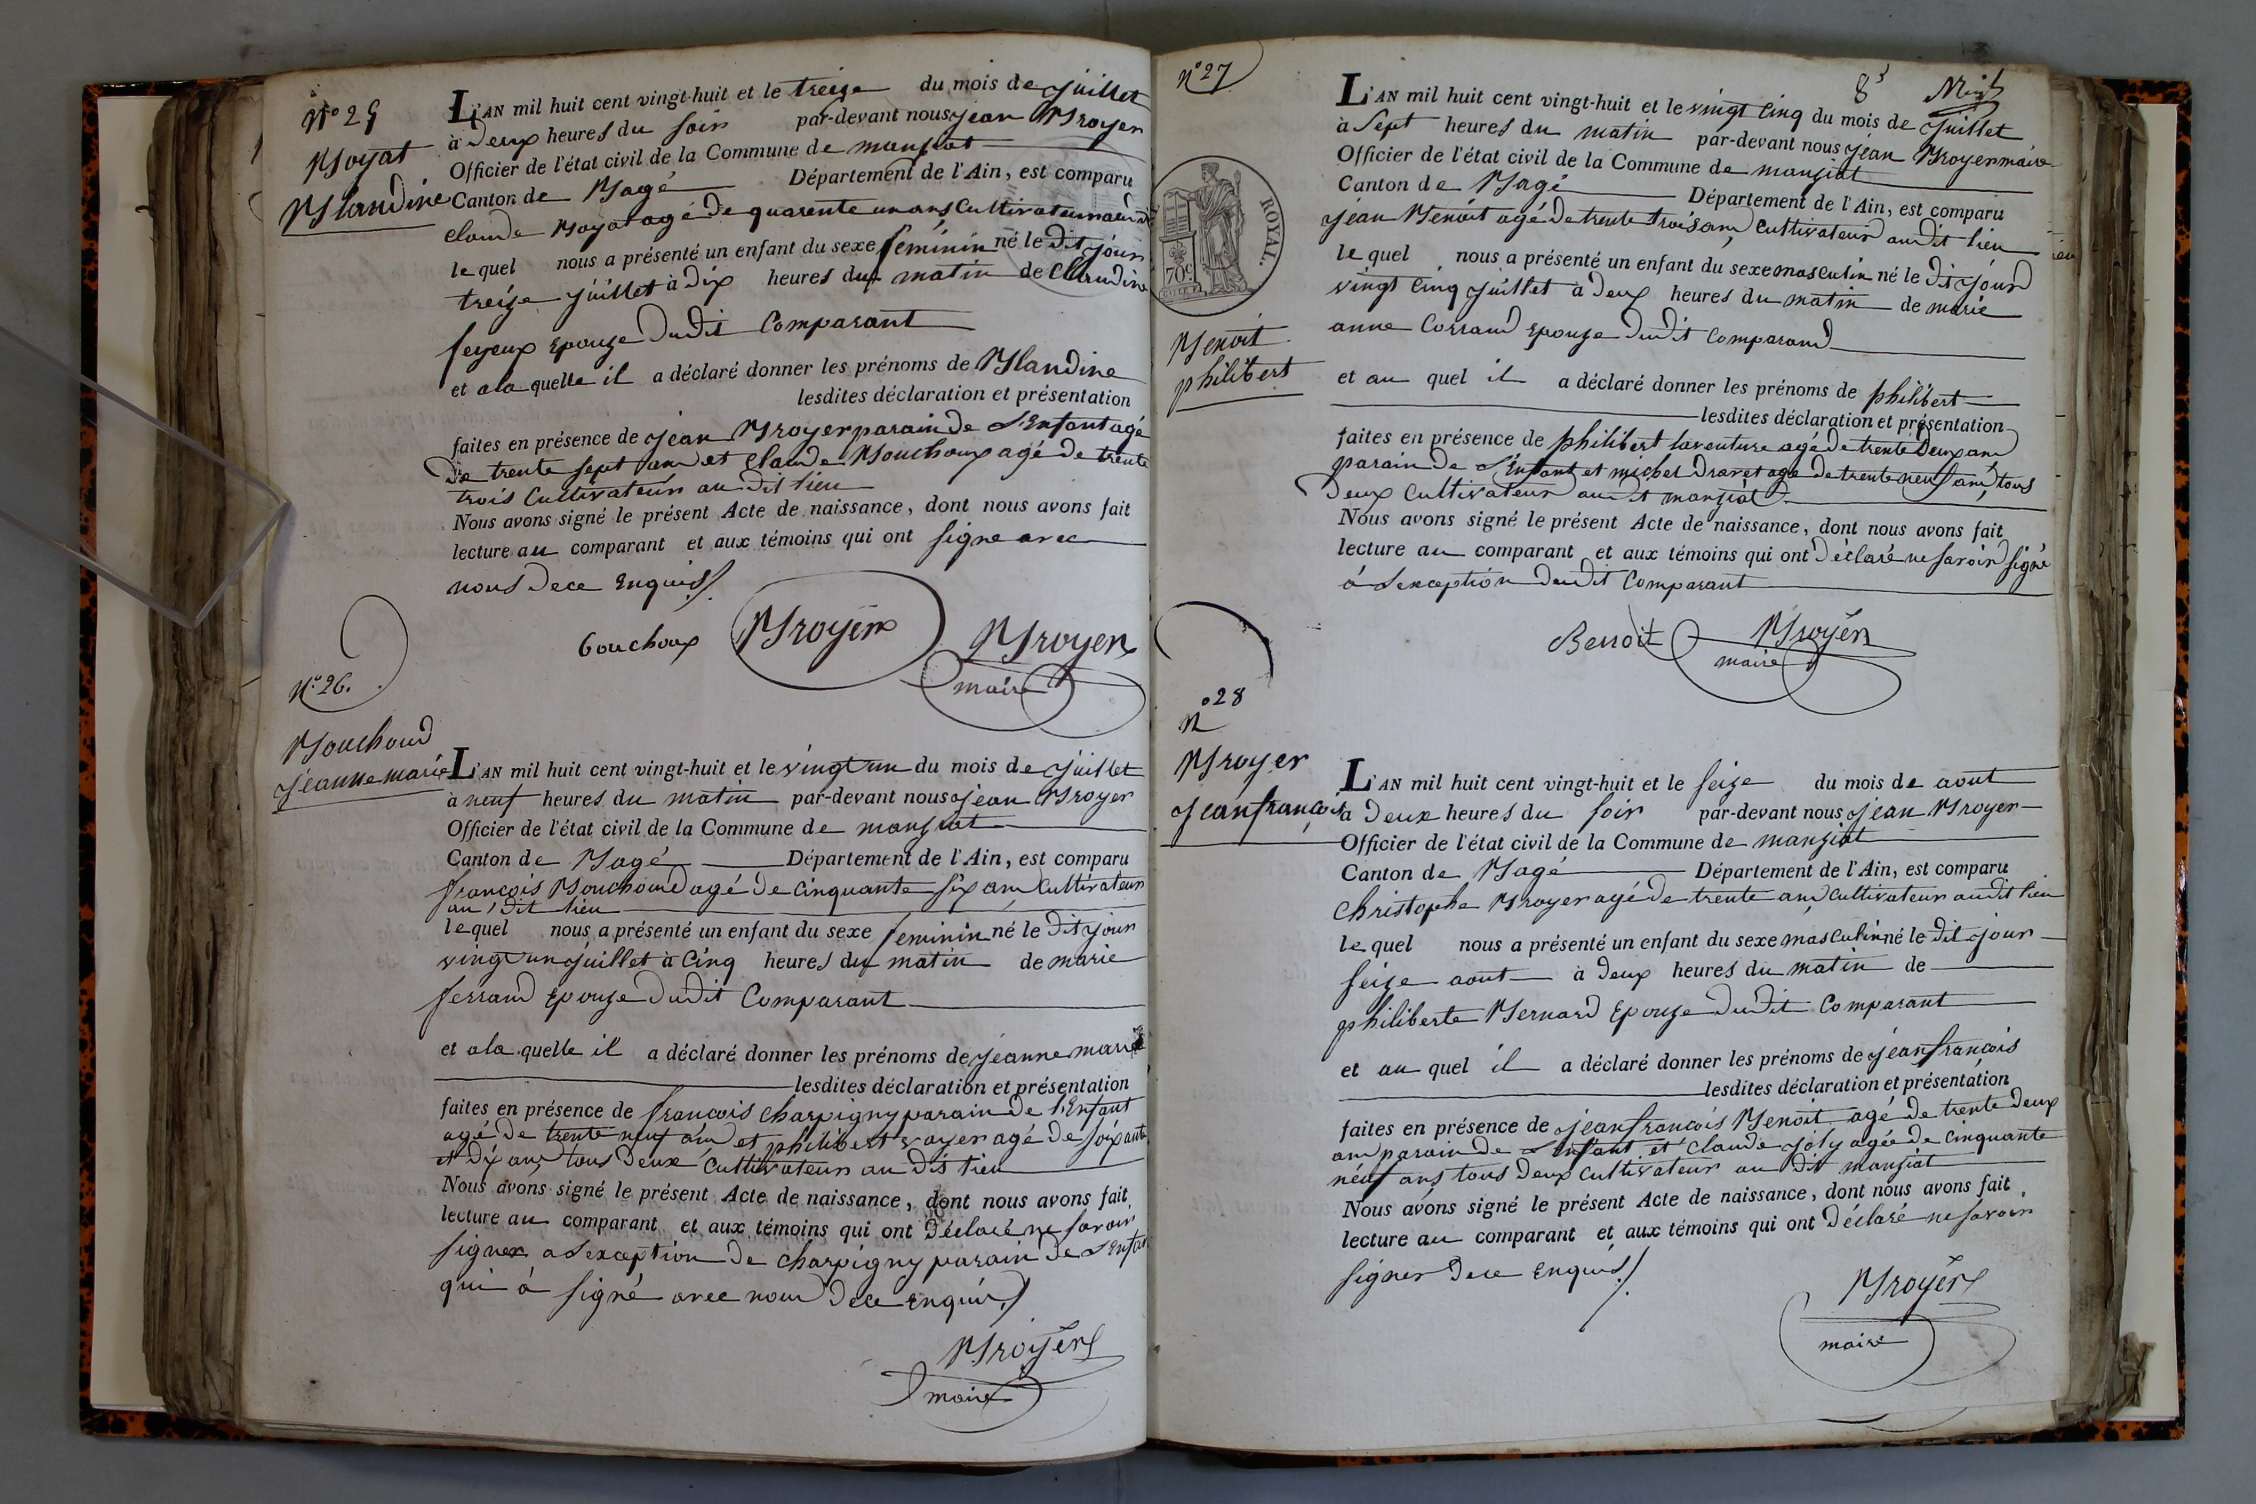 N° 25
Boyat
Blandine
L'AN mil huit cent vingt-huit et le treize du mois de juillet
à deux heures du soir par-devant nous jean Broyer
Officier de l'état civil de la Commune de manziat
Canton de Bagé Département de l'Ain, est comparu
claude Boyat agé de quarente un ans Cultivateur audit
le quel nous a présenté un enfant du sexe féminin né le dit jour
treize juillet à dix heures du matin de Claudine
feyeux Epouze dudit Comparant
et a la quelle il a déclaré donner les prénoms de Blandine
lesdites déclaration et présentation
faites en présence de jean Broyer parain de L'Enfant agé
de trente sept ans et claude Bouchoux agé de trente
trois Cultivateurs au dit lieu
Nous avons signé le présent Acte de naissance, dont nous avons fait
lecture au comparant et aux témoins qui ont signe avec
nous dece Enquis
bouchoux Broyer Broyer
maire
N° 26.
Bouchoud
jeanne marie
L'AN mil huit cent vingt-huit et le vingt un du mois de juillet
à neuf heures du matin par-devant nous jean Broyer
Officier de l'état civil de la Commune de manziat
Canton de Bagé Département de l'Ain, est comparu
françois Bouchoud agé de cinquante six ans Cultivateur
au dit lieu
le quel nous a présenté un enfant du sexe feminin né le dit jour
vingt un juillet à Cinq heures du matin de marie
ferrand Epouze dudit Comparant
et a la quelle il a déclaré donner les prénoms de jeanne marie
lesdites déclaration et présentation
faites en présence de françois charpigny parain de l'Enfant
agé de trente neuf ans et philibert voyer agé de soixante
et dix ans tous deux Cultivateurs au dis lieu
Nous avons signé le présent Acte de naissance, dont nous avons fait
lecture au comparant et aux témoins qui ont déclaré ne savoir
signer a Lexception de charpigny parain de L'Enfant
qui à signé avec nous dece enquis
Broyer
maire
N° 27
8
ROYAL.
70c
Benoit
philibert
L'AN mil huit cent vingt-huit et le vingt Cinq du mois de juillet
à Sept heures du matin par-devant nous jean Broyer maire
Officier de l'état civil de la Commune de manziat
Canton de Bagé Département de l'Ain, est comparu
jean Benoit agé de trente trois ans Cultivateur audit lieu
le quel nous a présenté un enfant du sexe masculin né le dit jour
vingt Cinq juillet à deux heures du matin de marie
anne Corrand Epouze dudit Comparand
et au quel il a déclaré donner les prénoms de philibert
lesdites déclaration et présentation
faites en présence de philibert laventure agé de trente deux ans
parain de L'Enfant et michel dravet agé de trente neuf ans, tous
deux Cultivateur audit manziat
Nous avons signé le présent Acte de naissance, dont nous avons fait
lecture au comparant et aux témoins qui ont déclaré ne savoir signé
à Lexception dudit Comparant
Benoit Broyer
maire
N° 28
Broyer
jean françois
L'AN mil huit cent vingt-huit et le seize du mois de aout
à deux heures du soir par-devant nous jean Broyer
Officier de l'état civil de la Commune de manziat
Canton de Bagé Département de l'Ain, est comparu
christophe Broyer agé de trente ans Cultivateur audit lieu
le quel nous a présenté un enfant du sexe masculin né le dit jour
seize aout à deux heures du matin de
philiberte Bernard Epouze dudit Comparant
et au quel il a déclaré donner les prénoms de jean françois
lesdites déclaration et présentation
faites en présence de jean françois Benoit agé de trente deux
ans parain de L'Enfant et Claude joly agée de cinquante
neuf ans tous deux Cultivateur au dit manziat
Nous avons signé le présent Acte de naissance, dont nous avons fait
lecture au comparant et aux témoins qui ont déclaré ne savoir
signer dece enquis
Broyer
maire